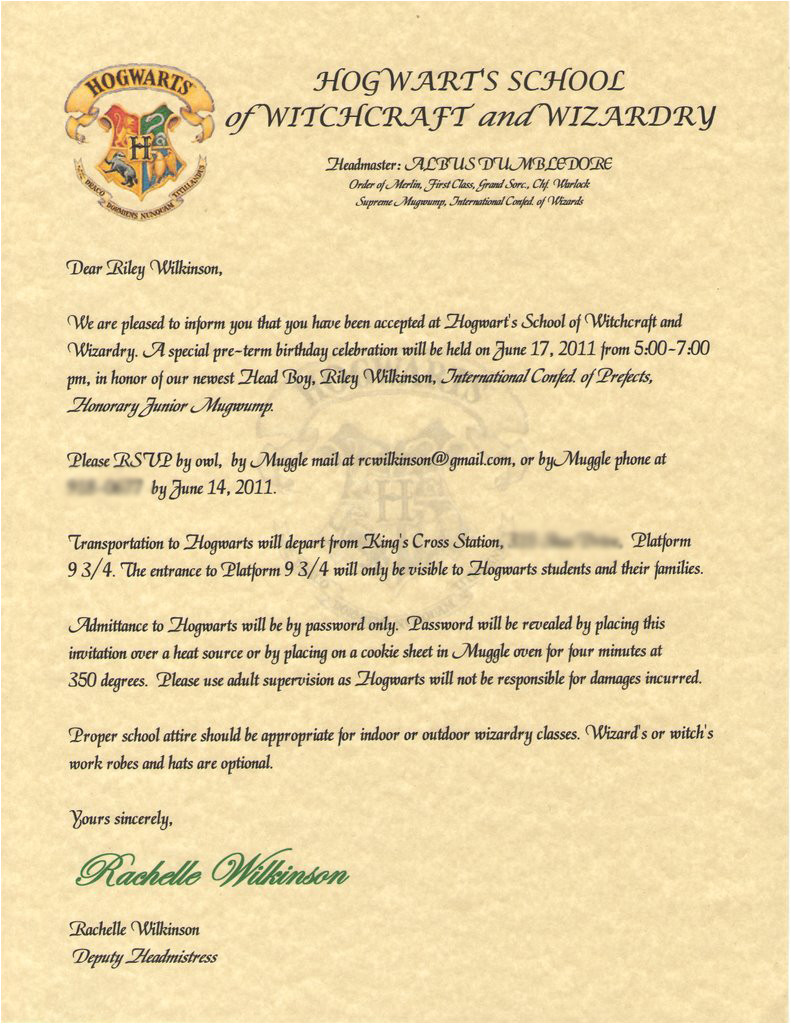 HOGWARTS
DRACO DORMIENS NUNQUAM TITILLANDUS
HOGWART'S SCHOOL
of WITCHCRAFT and WIZARDRY
Headmaster: ALBUS DUMBLEDORE
Order of Merlin, First Class, Grand Sorc., Chf. Warlock
Supreme Mugwump, International Confed. of Wizards
Dear Riley Wilkinson,
We are pleased to inform you that you have been accepted at Hogwart's School of Witchcraft and
Wizardry. A special pre-term birthday celebration will be held on June 17, 2011 from 5:00-7:00
pm, in honor of our newest Head Boy, Riley Wilkinson, International Confed. of Prefects,
Honorary Junior Mugwump.
Please RSVP by owl, by Muggle mail at rcwilkinson@gmail.com, or by Muggle phone at
by June 14, 2011.
Transportation to Hogwarts will depart from King's Cross Station, Platform
9 3/4. The entrance to Platform 9 3/4 will only be visible to Hogwarts students and their families.
Admittance to Hogwarts will be by password only. Password will be revealed by placing this
invitation over a heat source or by placing on a cookie sheet in Muggle oven for four minutes at
350 degrees. Please use adult supervision as Hogwarts will not be responsible for damages incurred.
Proper school attire should be appropriate for indoor or outdoor wizardry classes. Wizard's or witch's
work robes and hats are optional.
Yours sincerely,
Rachelle Wilkinson
Rachelle Wilkinson
Deputy Headmistress